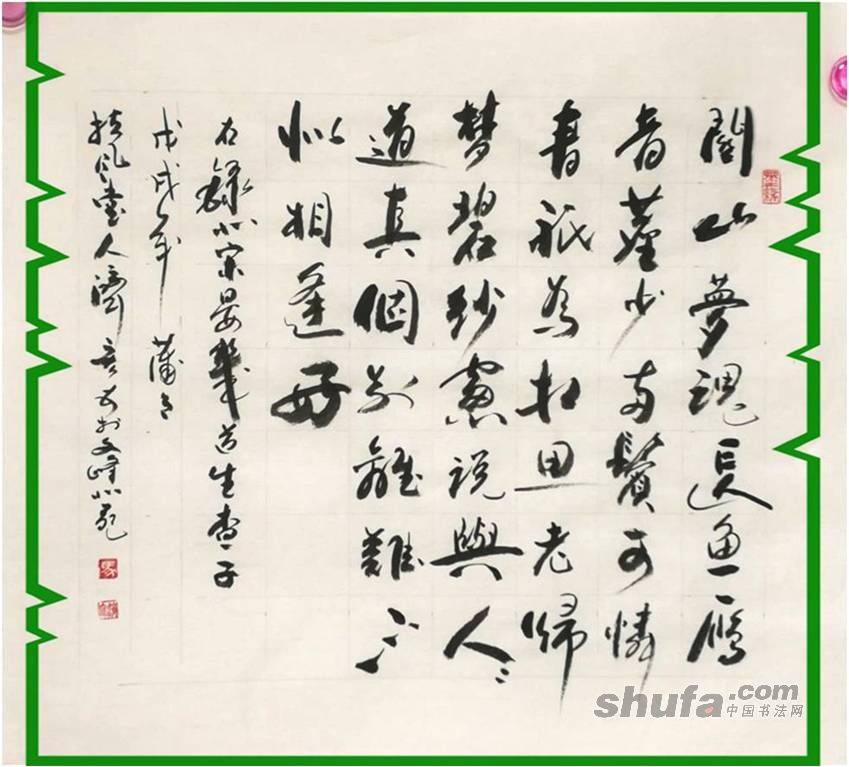 關山夢魂長魚雁
音塵少兩鬢可憐
青祇為相思老歸
夢碧紗窗說與人々
道真個別離難不
似相逢好
右錄北宋晏幾道生查子
戊戌年 蒲月
扶風堂人濟 於文峰北苑
shufa.com
中国书法网